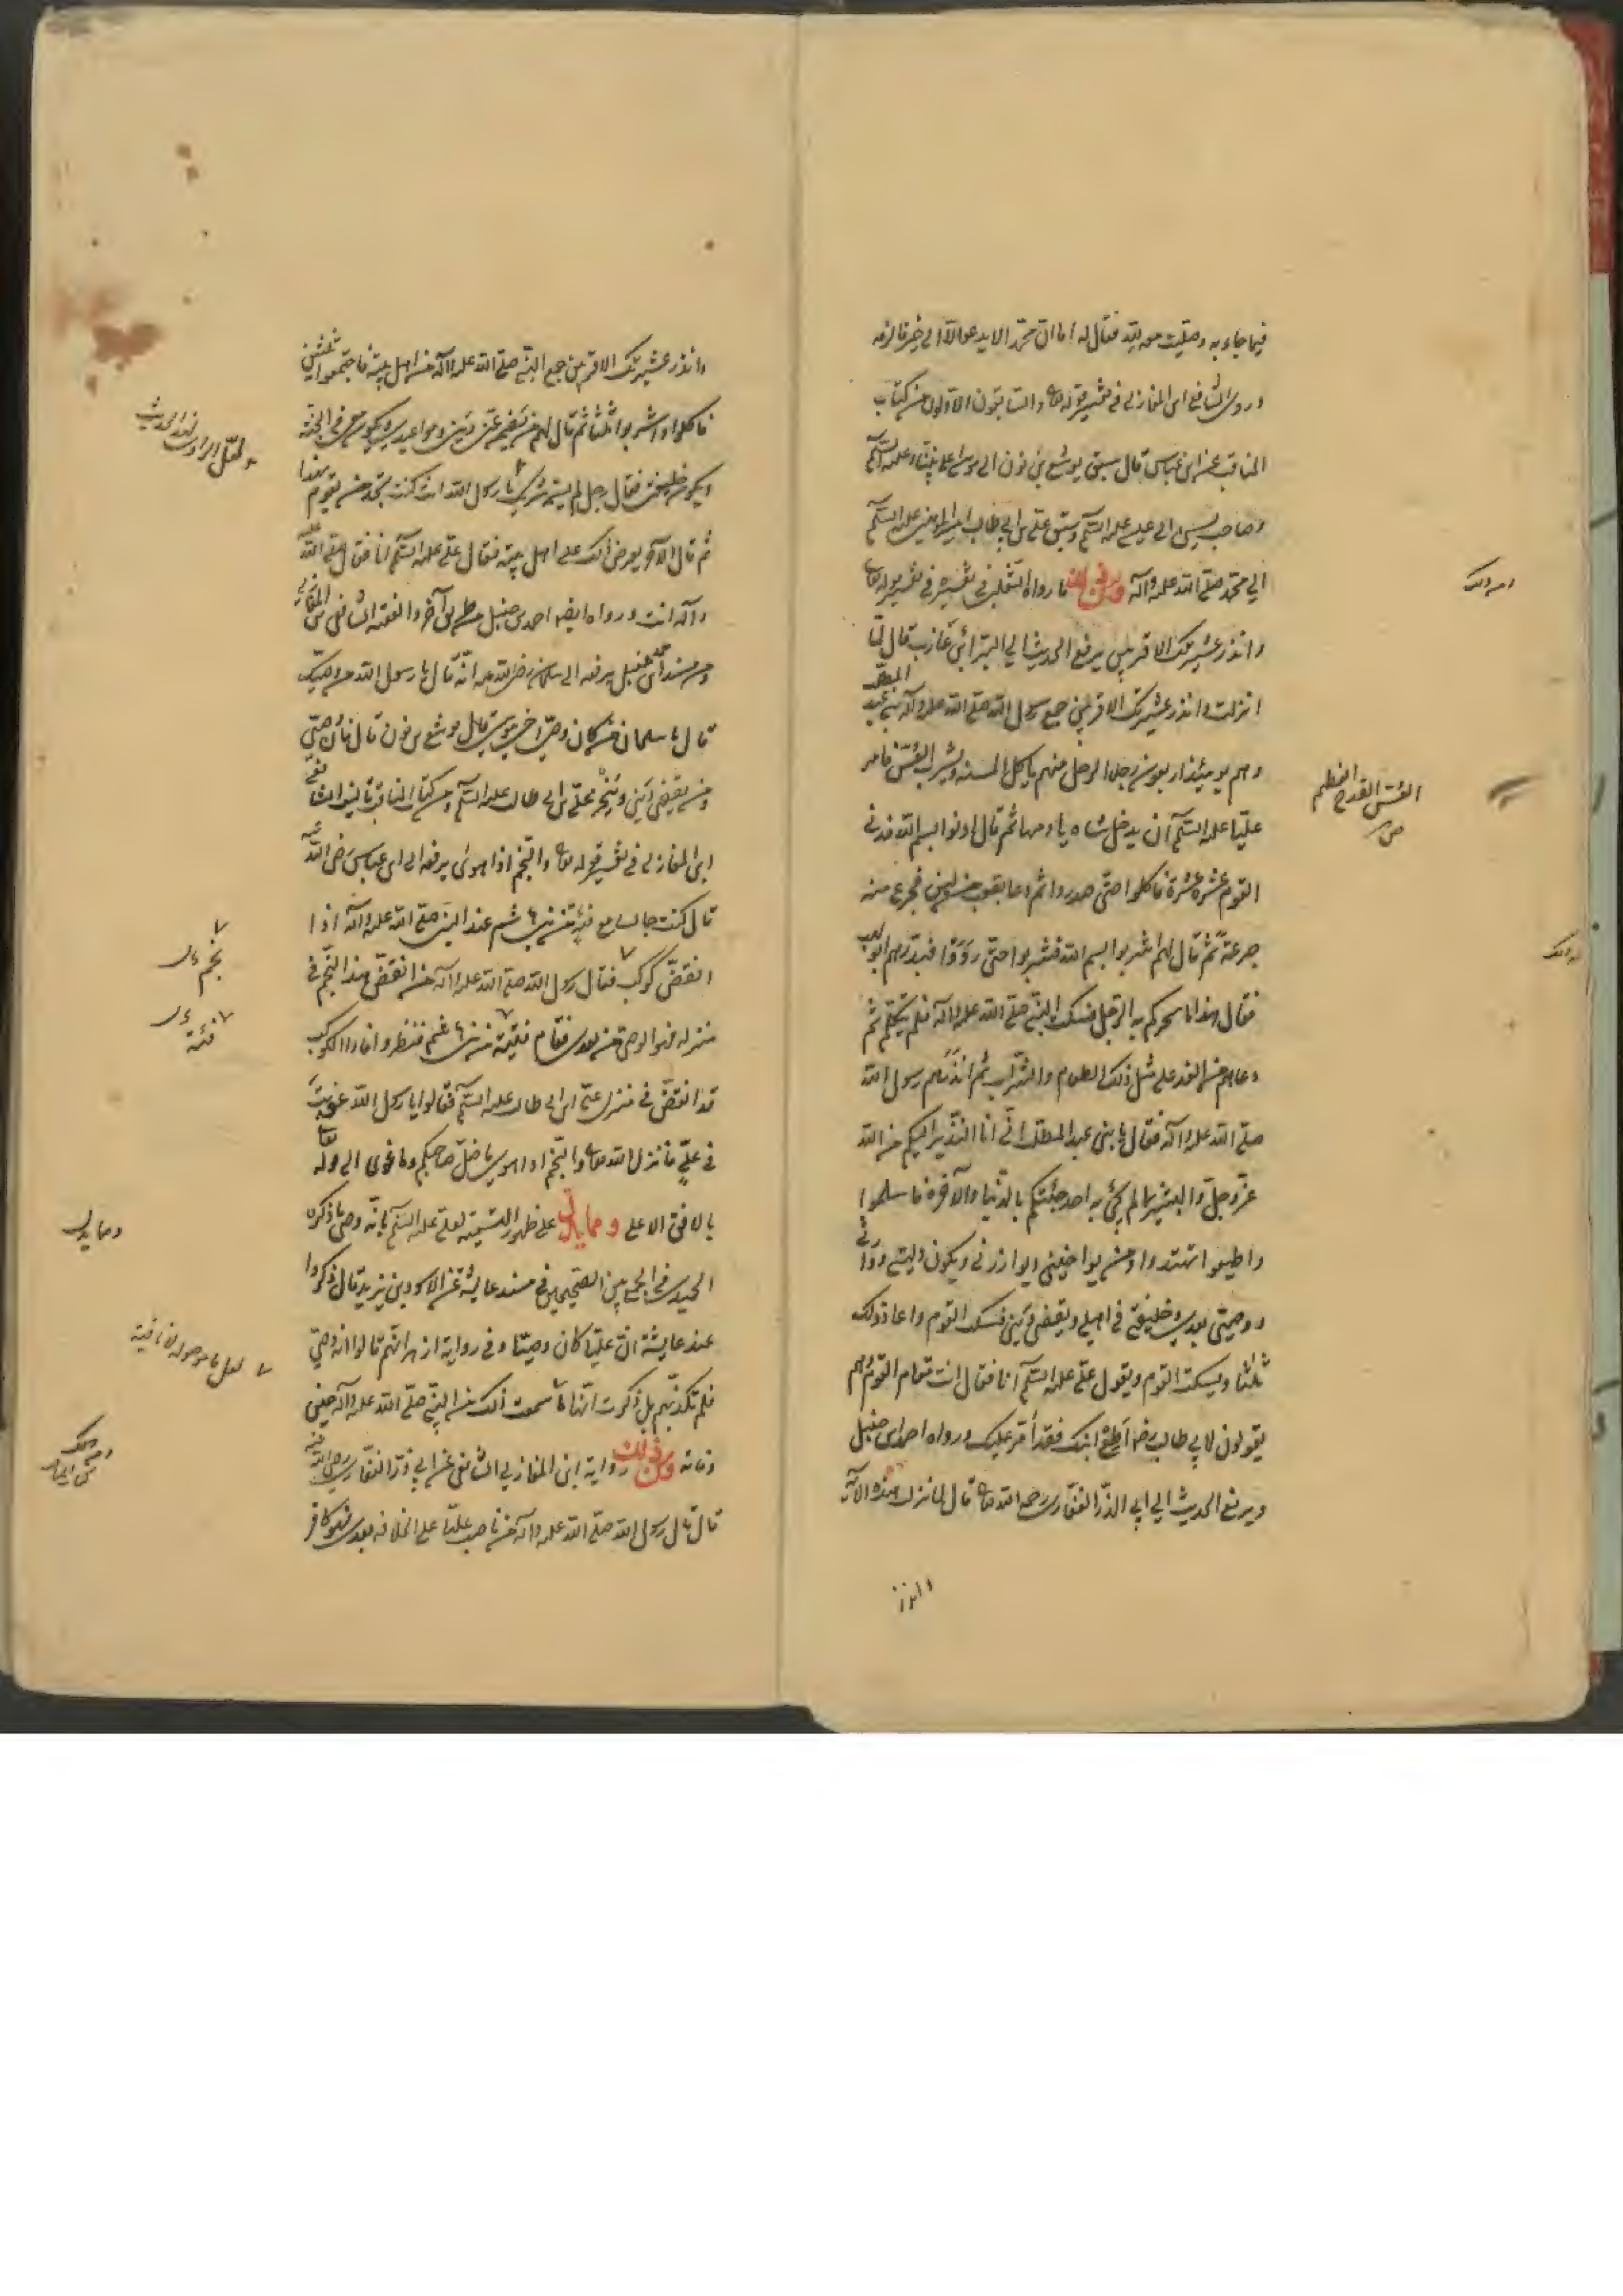 فيما جاء به وصليت معه لله فقال له اما ان محمدا لا يدعو الا الى خير فالزمه
وروى الشافعي ابن المغازلي في تفسير قوله تعا والسابقون الاولون من كتاب
المناقب عن ابن عباس قال سبق يوشع بن نون الى موسى على نبينا وعليه السلم
وصاحب يس الى عيسى عليه السلم وسبق علي بن ابي طالب امير المؤمنين عليه السلم
الى محمد صلى الله عليه وآله ما رواه الثعلبي في تفسيره في تفسير قوله تعا
وانذر عشيرتك الاقربين يرفع الحديث الى البراء بن عازب قال لما
انزلت وانذر عشيرتك الاقربين جمع رسول الله صلى الله عليه وآله بني عبد المطلب
وهم يومئذ اربعون رجلا الرجل منهم ياكل المسنة ويشرب العس فامر
عليا عليه السلم ان يدخل شاه فادمها ثم قال ادنوا بسم الله فدنى
القوم عشرة عشرة فاكلوا حتى صدروا ثم دعا بقعب من لبن فجرع منه
جرعة ثم قال لهم اشربوا بسم الله فشربوا حتى رووا فبدرهم ابو لهب
فقال هذا ما سحركم به الرجل فسكت النبي صلى الله عليه وآله فلم يتكلم ثم
دعاهم من الغد على مثل ذلك الطعام والشراب ثم انذرهم رسول الله
صلى الله عليه وآله فقال يا بني عبد المطلب اني انا النذير اليكم من الله
عز وجل والبشير لما لم يجئ به احد جئتكم بالدنيا والآخرة فاسلموا
واطيعوا تهتدوا ومن يواخيني ويوازرني ويكون وليي
ووصيي بعدي وخليفتي في اهلي ويقضي ديني فسكت القوم واعاد ذلك
ثلثا ويسكت القوم ويقول علي عليه السلم انا فقال انت فقام القوم وهم
يقولون لابي طالب رض اطع ابنك فقد أمر عليك ورواه احمد بن حنبل
ويرفع الحديث الى ابي الذر الغفاري رحمه الله تعا قال لما نزلت هذه الآية
وانذر
العس القدح العظيم
ص
وانذر عشيرتك الاقربين جمع النبي صلى الله عليه وآله من اهل بيته فاجتمعوا ثلثين
فاكلوا وشربوا ثلثا ثم قال لهم من يضمن عني ديني ومواعيدي ويكون معي في الجنة
ويكون خليفتي فقال رجل لم يسمه شريك يا رسول الله انت كنت تجد من يقوم بهذا
ثم قال الآخر يعرض ذلك على اهل بيته فقال علي عليه السلم انا فقال صلى الله عليه
وآله انت ورواه ايضا احمد بن حنبل بطريق آخر والفقيه الشافعي ابن المغازلي
ومن مسند احمد بن حنبل يرفعه الى سلمان رضي الله عنه انه قال يا رسول الله من وصيك
قال يا سلمان من كان وصي اخي موسى قال يوشع بن نون قال فان وصيي
ومن يقضي ديني وينجز علي بن ابي طالب عليه السلم ومن كتاب المناقب تاليف الشافعي
ابن المغازلي في تفسير قوله تعا والنجم اذا هوى يرفعه الى ابن عباس رضي الله عنه
قال كنت جالسا مع فئة من بني هاشم عند النبي صلى الله عليه وآله اذا
انقض كوكب فقال رسول الله صلى الله عليه وآله من انقض هذا النجم في
منزله فهو الوصي من بعدي فقام فتية من بني هاشم فنظروا فاذا الكوكب
قد انقض في منزل علي ابن ابي طالب عليه السلم فقالوا يا رسول الله غويت
في علي فانزل الله تعا والنجم اذا هوى ما ضل صاحبكم وما غوى الى قوله تعا
بالافق الاعلى ومما يدل على ظهور التسمية لعلي عليه السلم بانه وصي ما ذكره
الحميدي في الجمع بين الصحيحين في مسند عايشة عن الاسود بن يزيد قال ذكروا
عند عايشة ان عليا كان وصيا وفي رواية ازهر انهم قالوا انه وصي
فلم تكذبهم بل ذكرت انها ما سمعت ذلك من النبي صلى الله عليه وآله حين
وفاته ومن ذلك رواية ابن المغازلي الشافعي عن ابي ذر الغفاري رضي الله عنه
قال قال رسول الله صلى الله عليه وآله من ناصب عليا على الخلافة بعدي فهو كافر
نجم
فئة
ومما يدل
لعل ما موصولة لا نافية